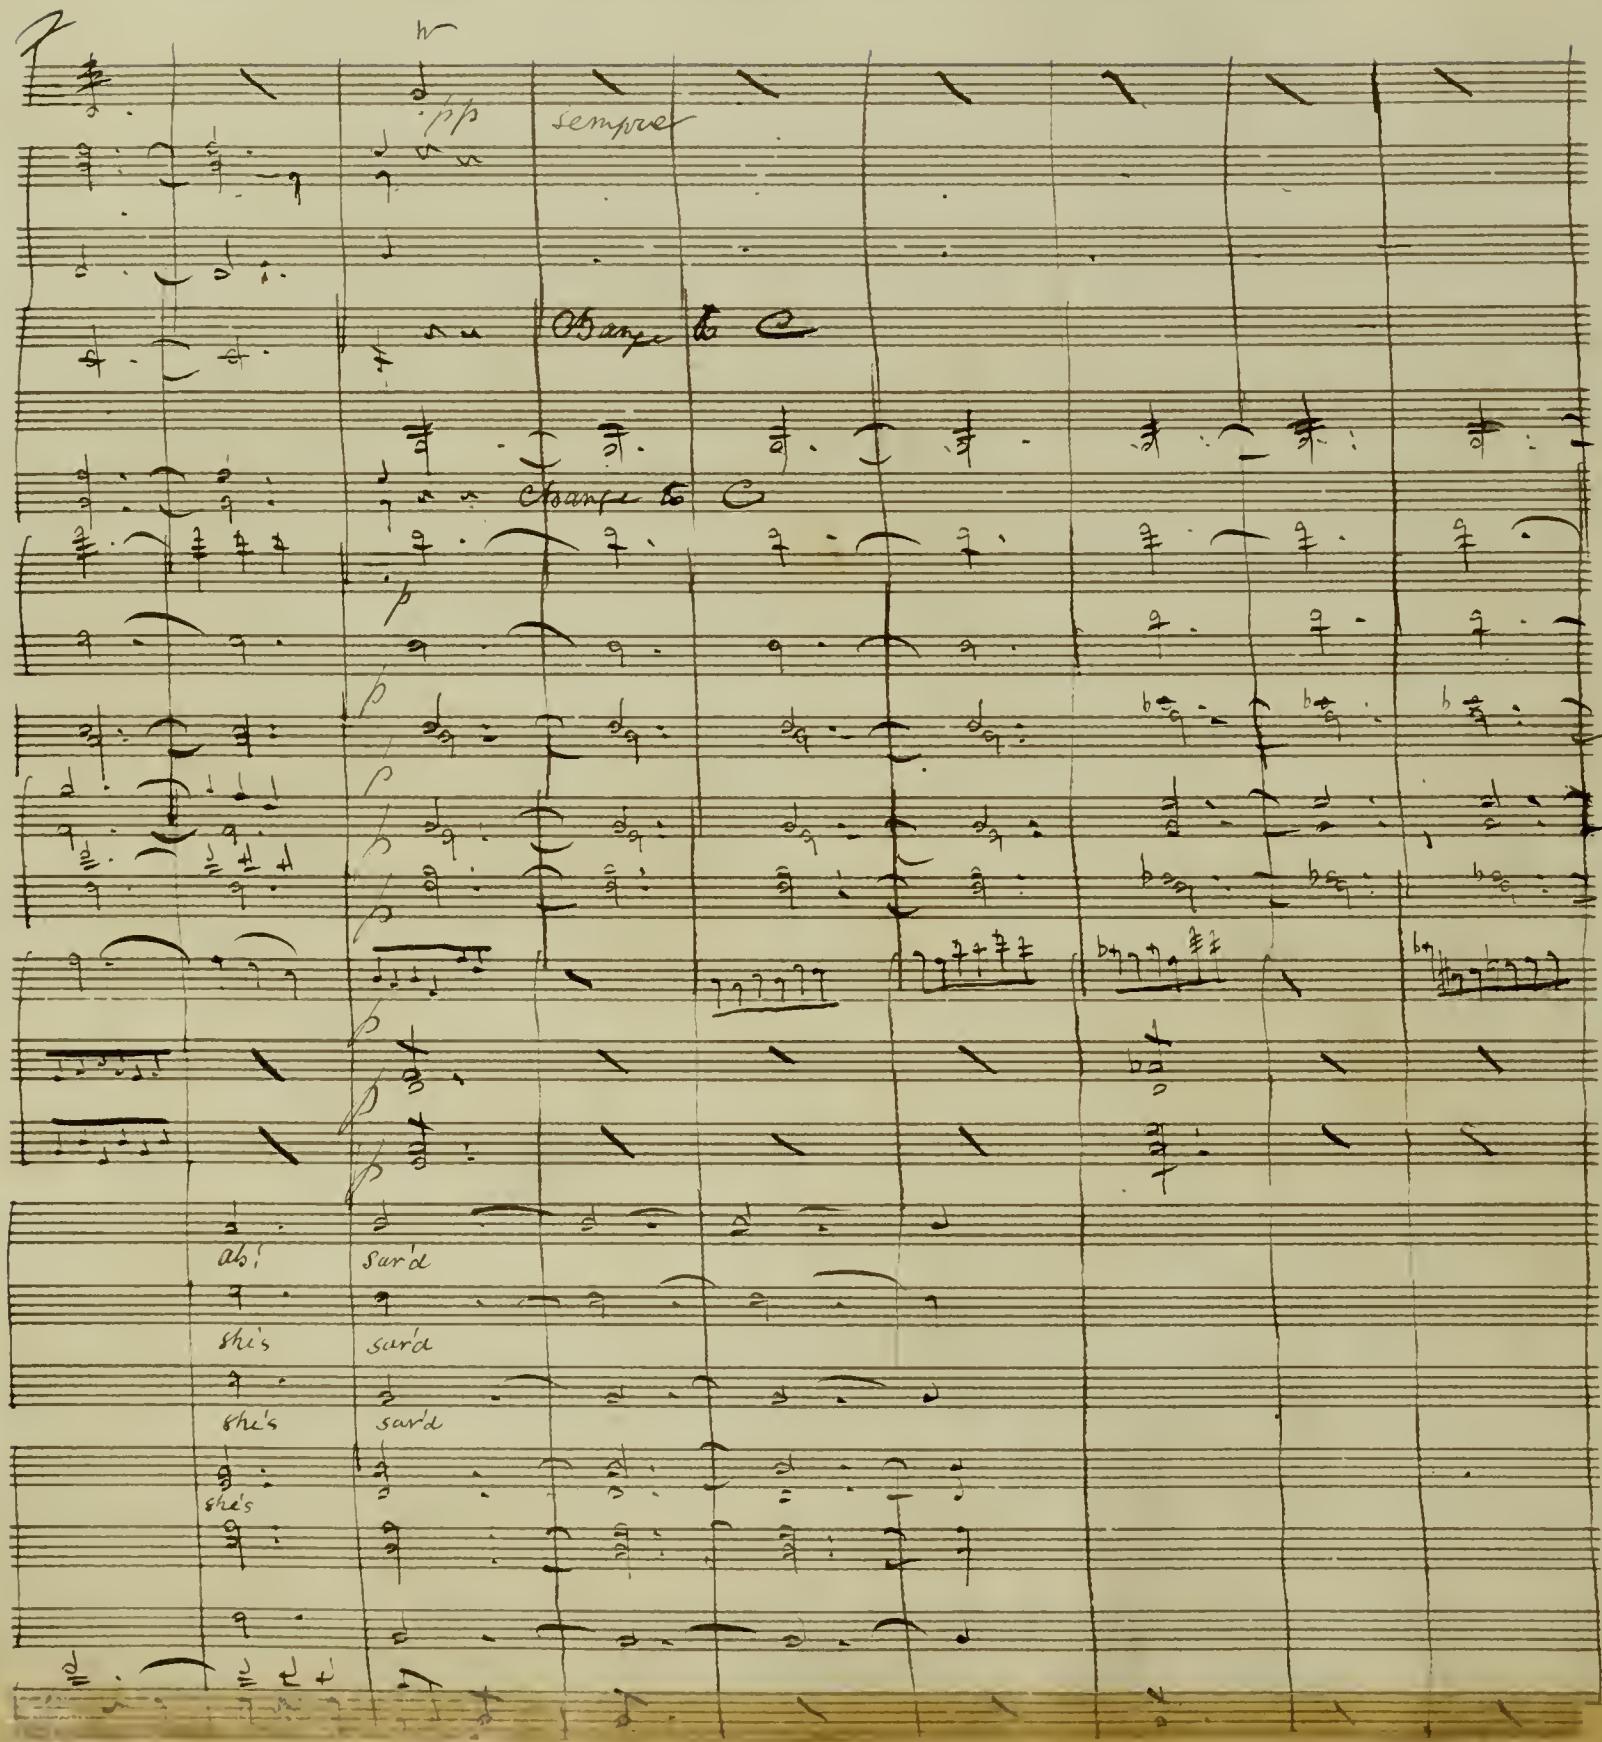 pp sempre
Change to C
Change to C
p
p
p
p
p
p
p
p
ah! sav'd
she's sav'd
she's sav'd
she's